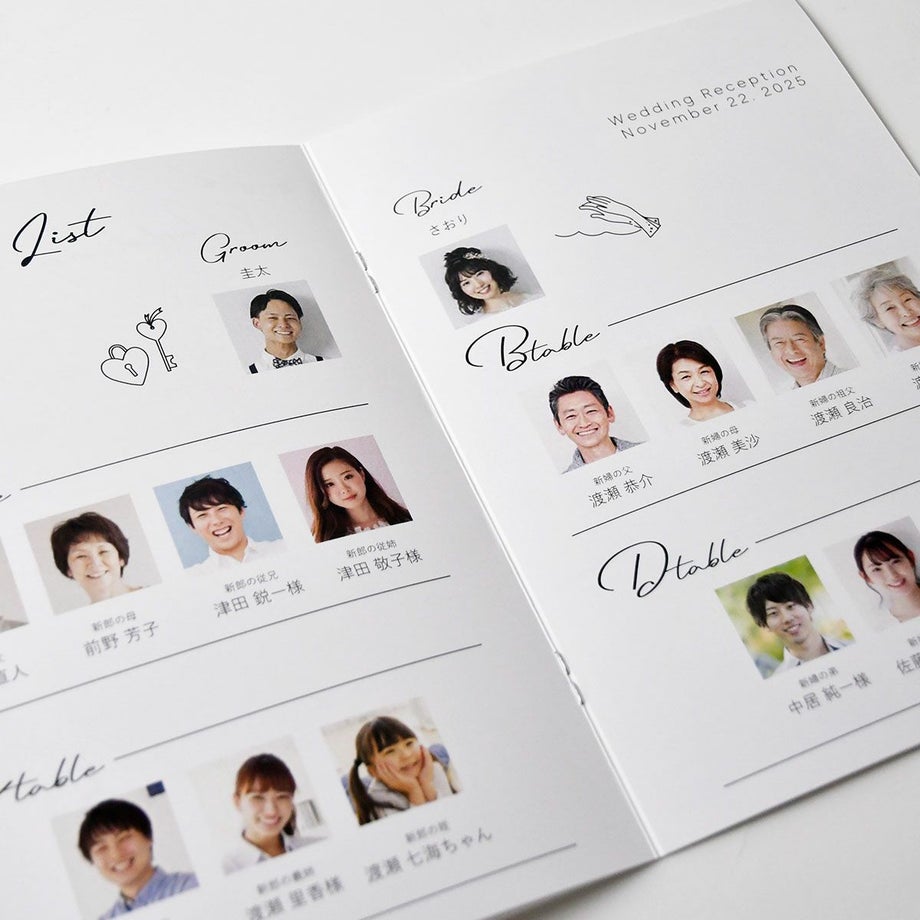 List
Groom
圭太
新郎の母
前野 芳子
新郎の従兄
津田 鋭一様
新郎の従姉
津田 敬子様
直人
table
新郎の義姉
渡瀬 里香様
新郎の姪
渡瀬 七海ちゃん
Wedding Reception
November 22. 2025
Bride
さおり
B table
新婦の父
渡瀬 恭介
新婦の母
渡瀬 美沙
新婦の祖父
渡瀬 良治
D table
新婦の弟
中居 純一様
佐藤